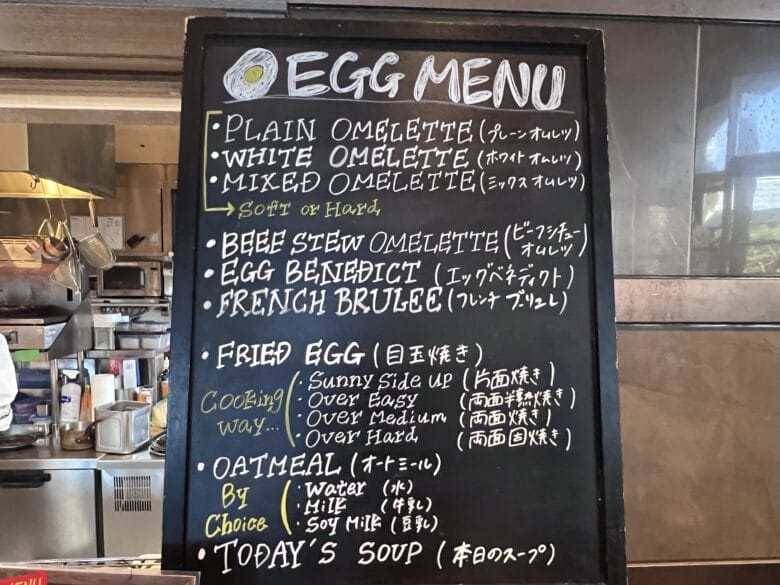 EGG MENU
・PLAIN OMELETTE (プレーンオムレツ)
・WHITE OMELETTE (ホワイトオムレツ)
・MIXED OMELETTE (ミックスオムレツ)
→ Soft or Hard
・BEEF STEW OMELETTE (ビーフシチューオムレツ)
・EGG BENEDICT (エッグベネディクト)
・FRENCH BRULEE (フレンチ ブリュレ)
・FRIED EGG (目玉焼き)
Cooking way...
・Sunny Side up (片面焼き)
・Over Easy (両面半熟焼き)
・Over Medium (両面焼き)
・Over Hard (両面固焼き)
・OATMEAL (オートミール)
By Choice
・Water (水)
・Milk (牛乳)
・Soy Milk (豆乳)
・TODAY'S SOUP (本日のスープ)
MENU